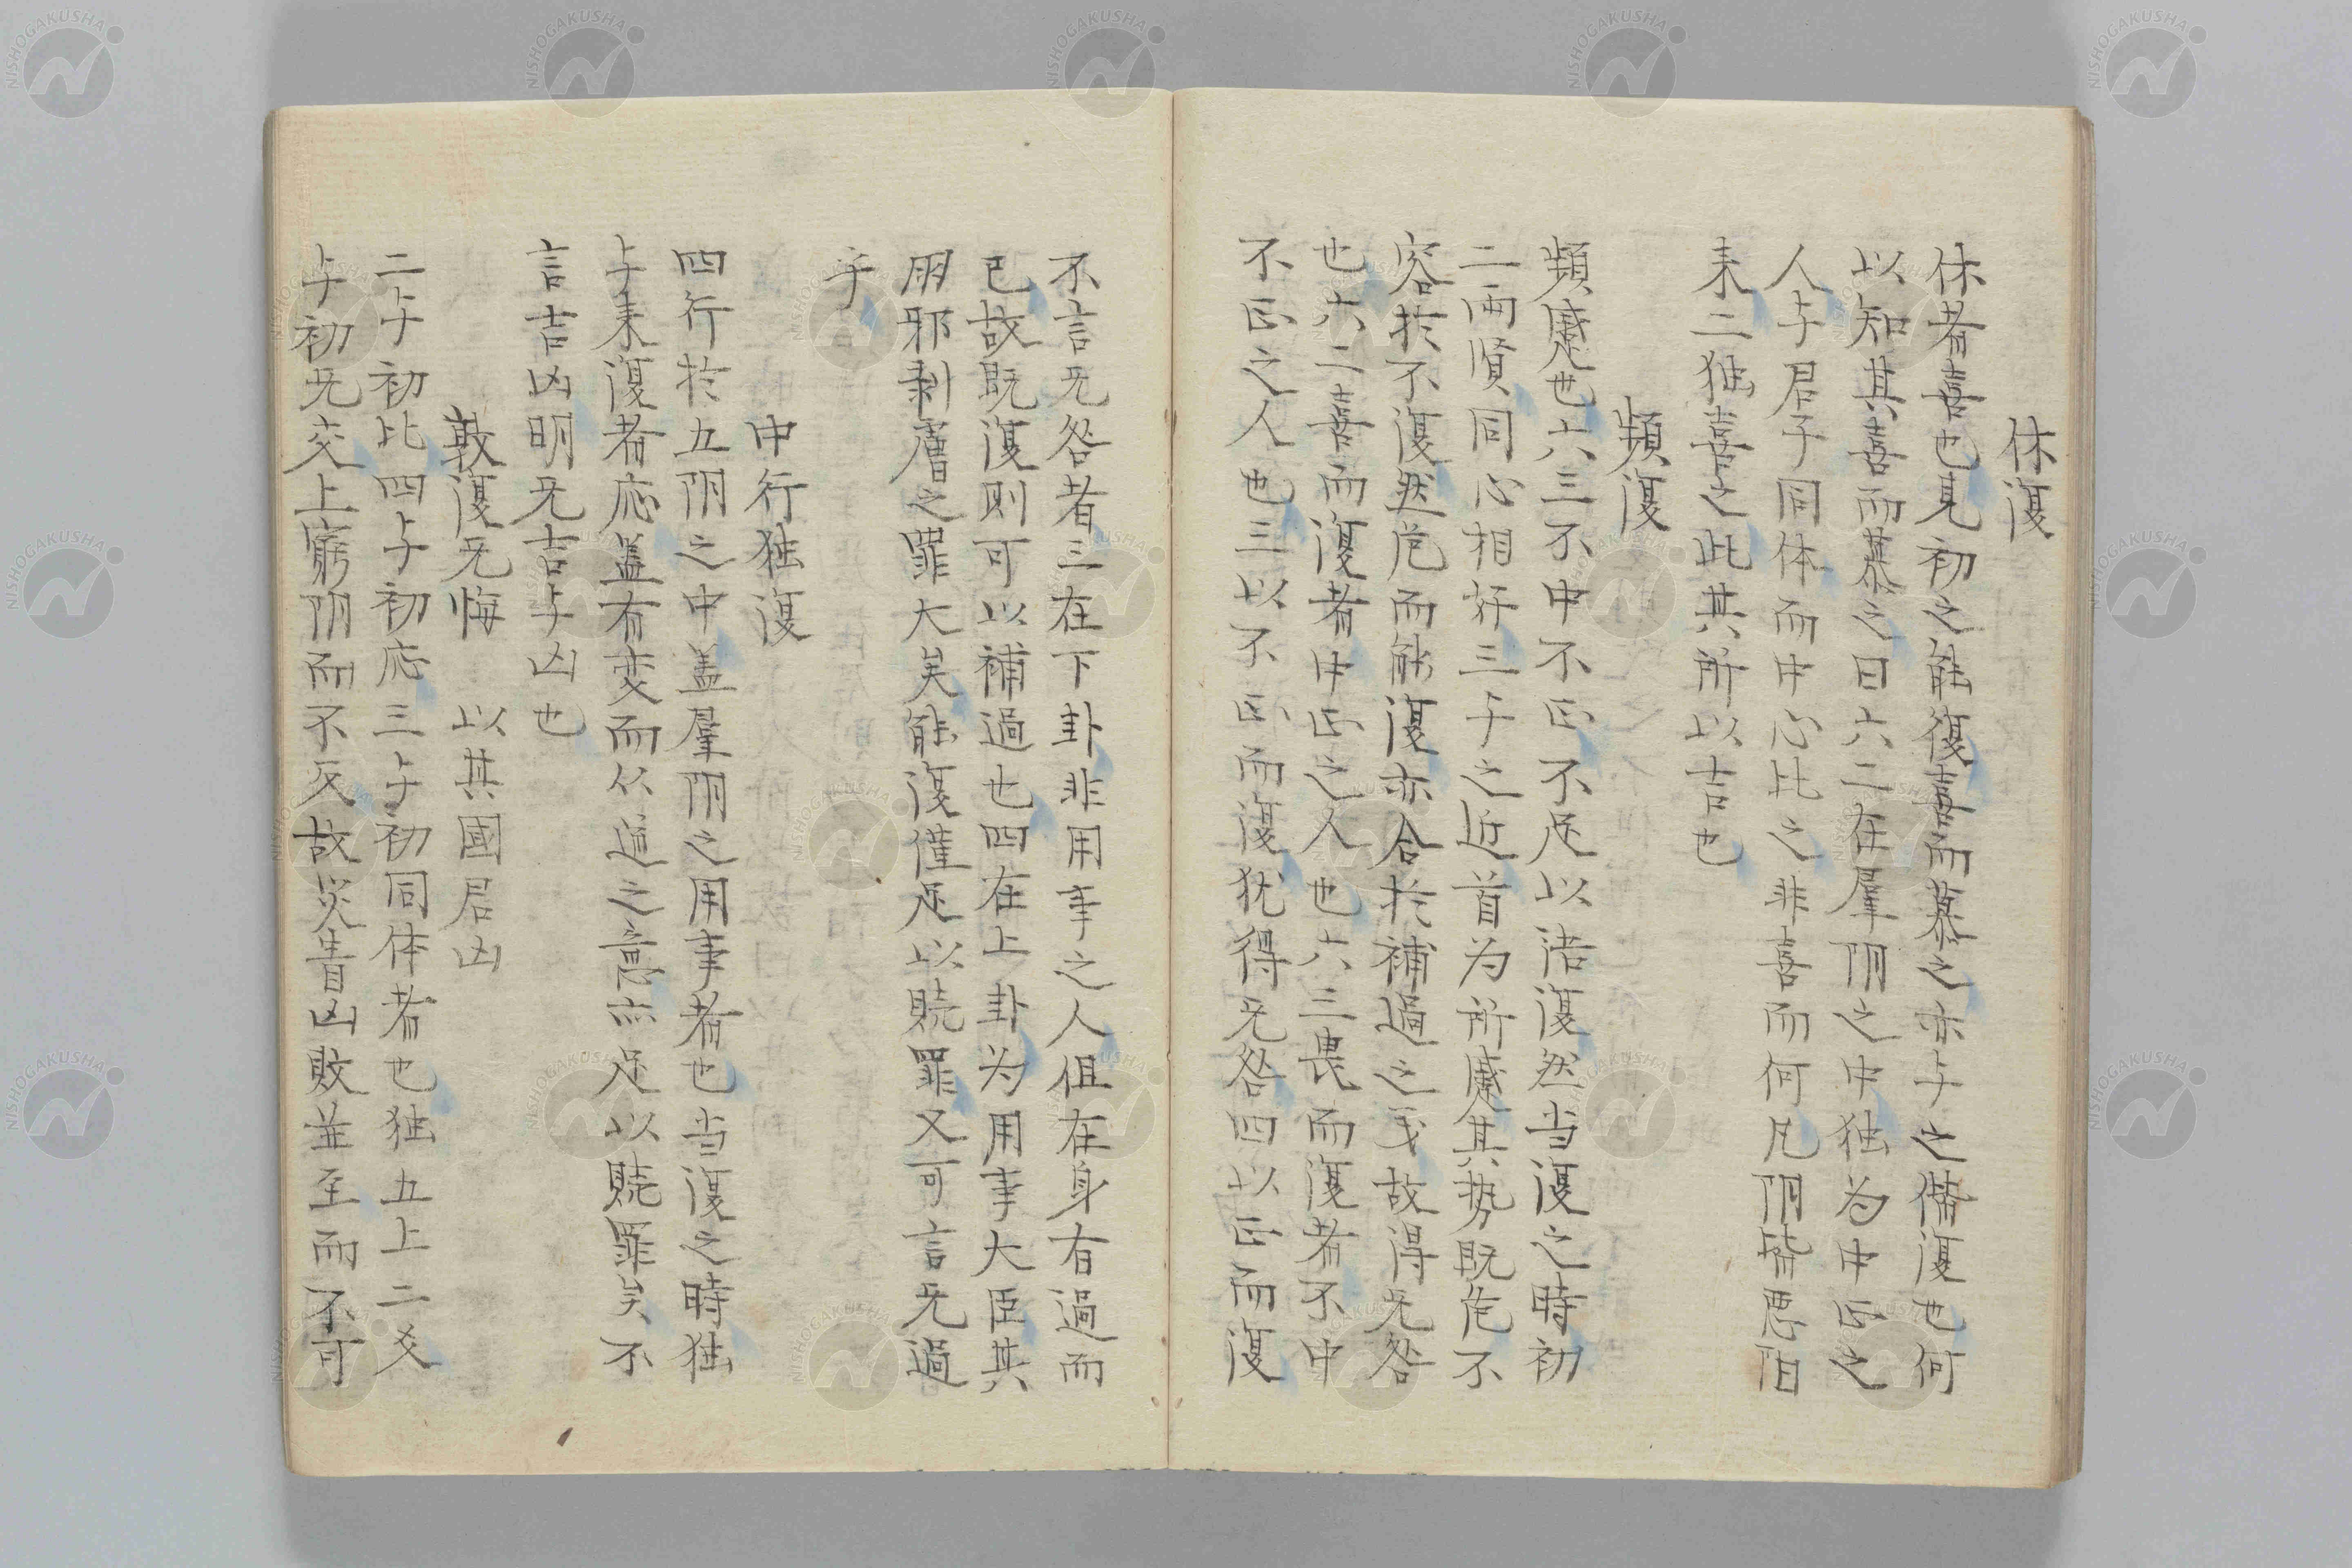 休復
休者喜也見初之能復喜而慕之亦与之偕復也何
以知其喜而慕之曰六二在羣阴之中独為中正之
人与君子同体而中心比之非喜而何凡阴皆悪阳
耒二独喜之此其所以吉也
頻復
頻蹙也六三不中不正不足以语復然当復之時初
二両賢同心相好三与之近首为所蹙其势既危不
容於不復然危而能復亦合於補過之义故得无咎
也六二喜而復者中正之人也六三畏而復者不中
不正之人也三以不正而復犹得无咎四以正而復
不言无咎者三在下卦非用事之人但在身有過而
已故既復則可以補過也四在上卦为用事大臣其
朋邪剥膚之罪大矣能復僅足以贖罪又可言无過
乎
中行独復
四行於五阴之中盖羣阴之用事者也当復之時独
与耒復者応盖有变而从道之意亦足以贖罪矣不
言吉凶明无吉与凶也
敦復无悔　以其國君凶
二与初比四与初応三与初同体者也独五上二爻
与初无交上窮阴而不反故災眚凶敗並至而不可